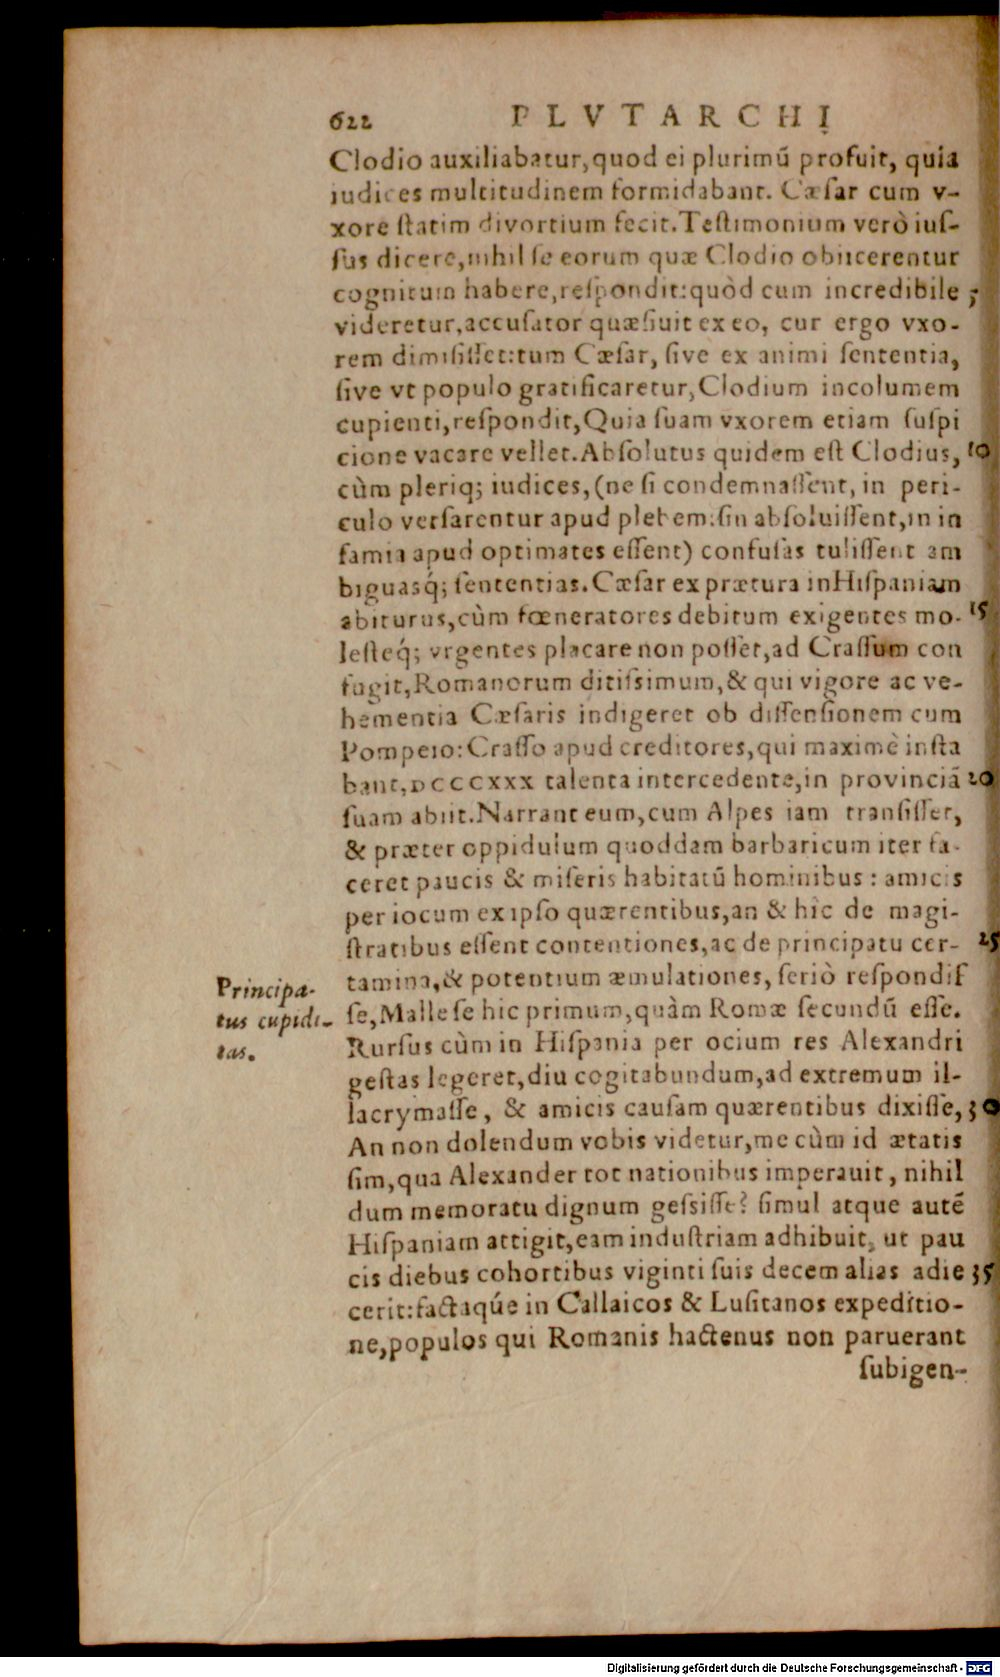 622 PLVTARCHI
Clodio auxiliabatur, quod ei plurimū profuit, quia
iudices multitudinem formidabant. Cæſar cum v-
xore ſtatim divortium fecit. Teſtimonium verò iuſ-
ſus dicere, nihil ſe eorum quæ Clodio obiicerentur
cognitum habere, reſpondit: quòd cum incredibile 5
videretur, accuſator quæſiuit ex eo, cur ergo vxo-
rem dimiſiſſet: tum Cæſar, ſive ex animi ſententia,
ſive vt populo gratificaretur, Clodium incolumem
cupienti, reſpondit, Quia ſuam vxorem etiam ſuſpi
cione vacare vellet. Abſolutus quidem eſt Clodius, 10
cùm pleriq; iudices, (ne ſi condemnaſſent, in peri-
culo verſarentur apud plebem: ſin abſoluiſſent, in in
famia apud optimates eſſent) confuſas tuliſſent am
biguasq́; ſententias. Cæſar ex prætura in Hiſpaniam
abiturus, cùm fœneratores debitum exigentes mo- 15
leſteq́; vrgentes placare non poſſet, ad Craſſum con
fugit, Romanorum ditiſsimum, & qui vigore ac ve-
hementia Cæſaris indigeret ob diſſenſionem cum
Pompeio: Craſſo apud creditores, qui maximè inſta
bant, DCCCCXXX talenta intercedente, in provinciā 20
ſuam abiit. Narrant eum, cum Alpes iam tranſiſſet,
& præter oppidulum quoddam barbaricum iter fa-
ceret paucis & miſeris habitatū hominibus: amicis
per iocum ex ipſo quærentibus, an & hîc de magi-
ſtratibus eſſent contentiones, ac de principatu cer- 25
tamina, & potentium æmulationes, ſeriò reſpondiſ
Principa-
tus cupidi-
tas.
ſe, Malle ſe hic primum, quàm Romæ ſecundū eſſe.
Rurſus cùm in Hiſpania per ocium res Alexandri
geſtas legeret, diu cogitabundum, ad extremum il-
lacrymaſſe, & amicis cauſam quærentibus dixiſſe, 30
An non dolendum vobis videtur, me cùm id ætatis
ſim, qua Alexander tot nationibus imperauit, nihil
dum memoratu dignum geſsiſſe? ſimul atque autē
Hiſpaniam attigit, eam induſtriam adhibuit, ut pau
cis diebus cohortibus viginti ſuis decem alias adie 35
cerit: factaqúe in Callaicos & Luſitanos expeditio-
ne, populos qui Romanis hactenus non paruerant
ſubigen-
Digitalisierung gefördert durch die Deutsche Forschungsgemeinschaft - DFG